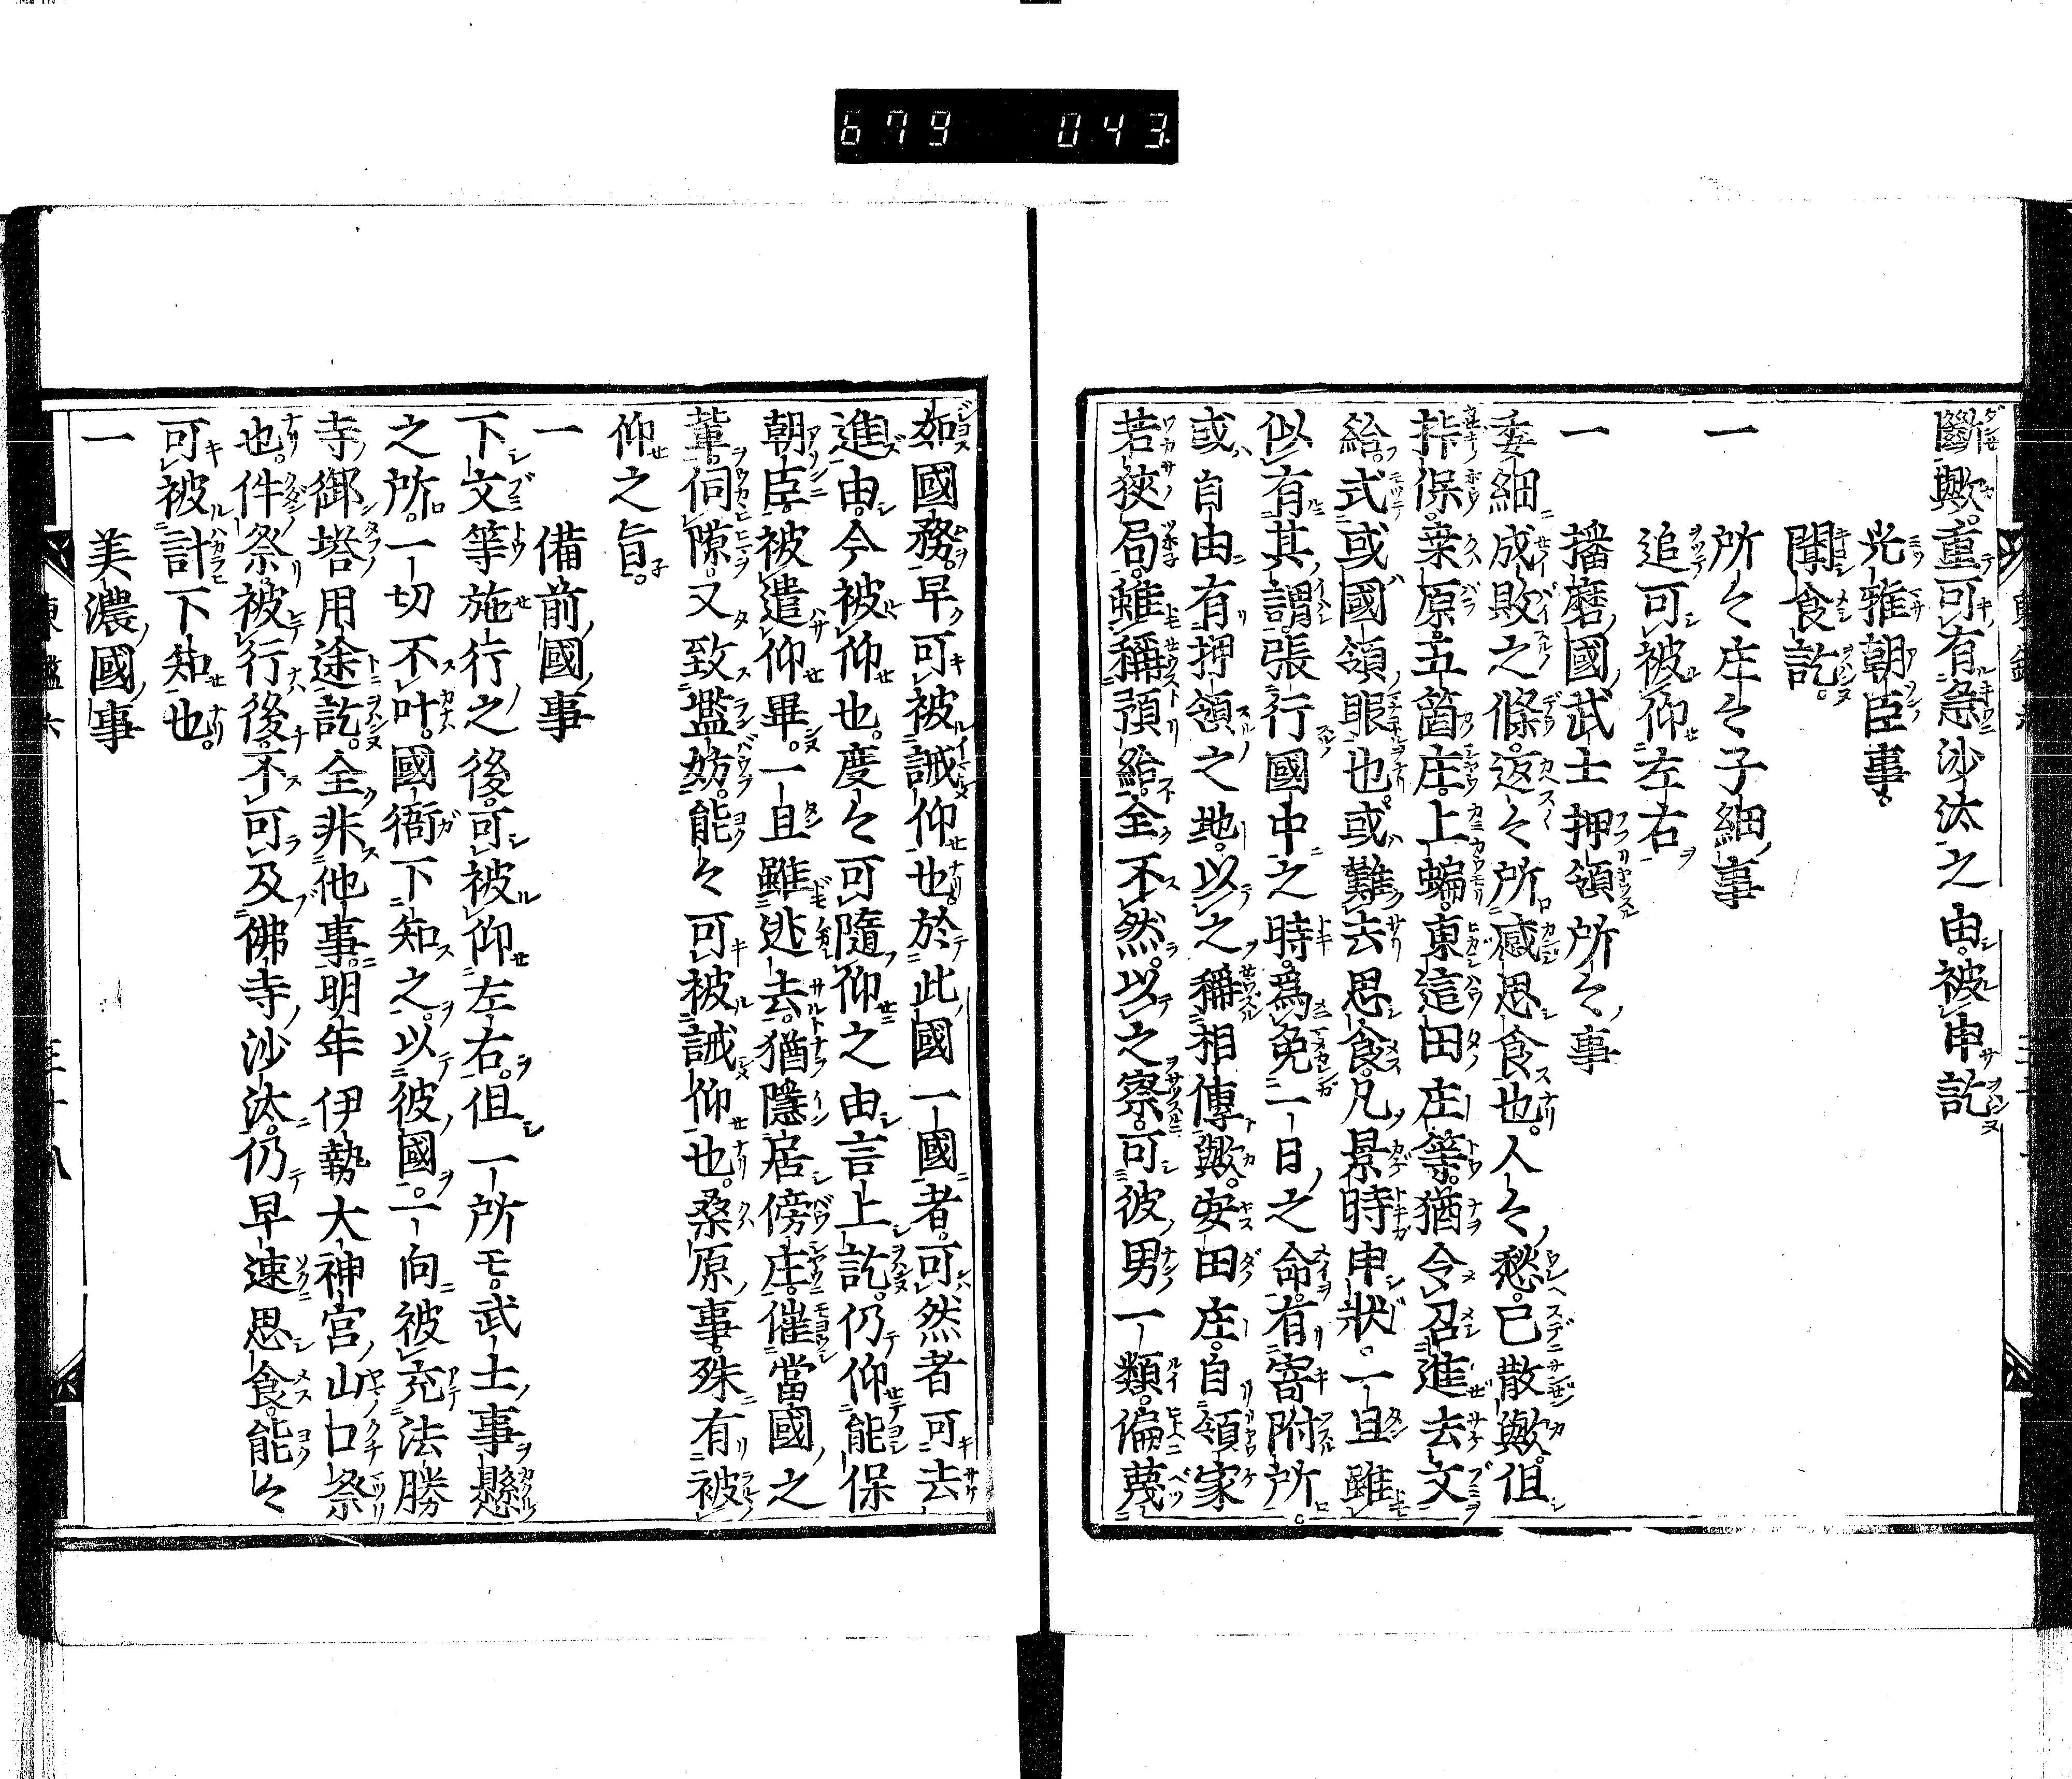 679 043
斷歟。重可有急沙汰之由。被申訖
光雅朝臣事。
聞食訖。
一 所々庄々子細事
追可被仰左右
一 播磨國武士押領所々事
委細成敗之條。返々所感思食也。人々愁。已散歟。但
桛保。桒原。五箇庄。上蝙。東這田庄等。猶令召進去文
給。式或國領眼也。或難去思食。凡景時申狀。一旦雖
似有其謂。張行國中之時。爲免一日之命。有寄附所。
或自由有押領之地。以之稱相傳歟。安田庄。自領家
若狹局。雖稱預給。全不然。以之察。可彼男一類。偏蔑
如國務。早可被誡仰也。於此國一國者。可然者可去
進由。今被仰也。度々可隨仰之由言上訖。仍仰能保
朝臣。被遣仰畢。一旦雖逃去。猶隱居傍庄。催當國之
輩。伺隙。又致濫妨。能々可被誡仰也。桑原事。殊有被
仰之旨。
一 備前國事
下文等施行之後。可被仰左右。但一所モ。武士事懸
之所。一切不叶。國衙下知之。以彼國。一向被充法勝
寺御塔用途訖。全非他事。明年伊勢大神宮山口祭
也。件祭被行後。不可及佛寺沙汰。仍早速思食。能々
可被計下知也。
一 美濃國事